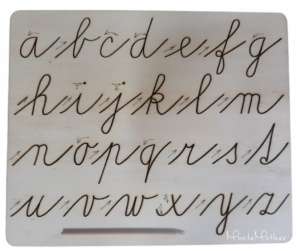 a b c d e f g
h i j k l m
n o p q r s s
u v w x y z
MonteMother